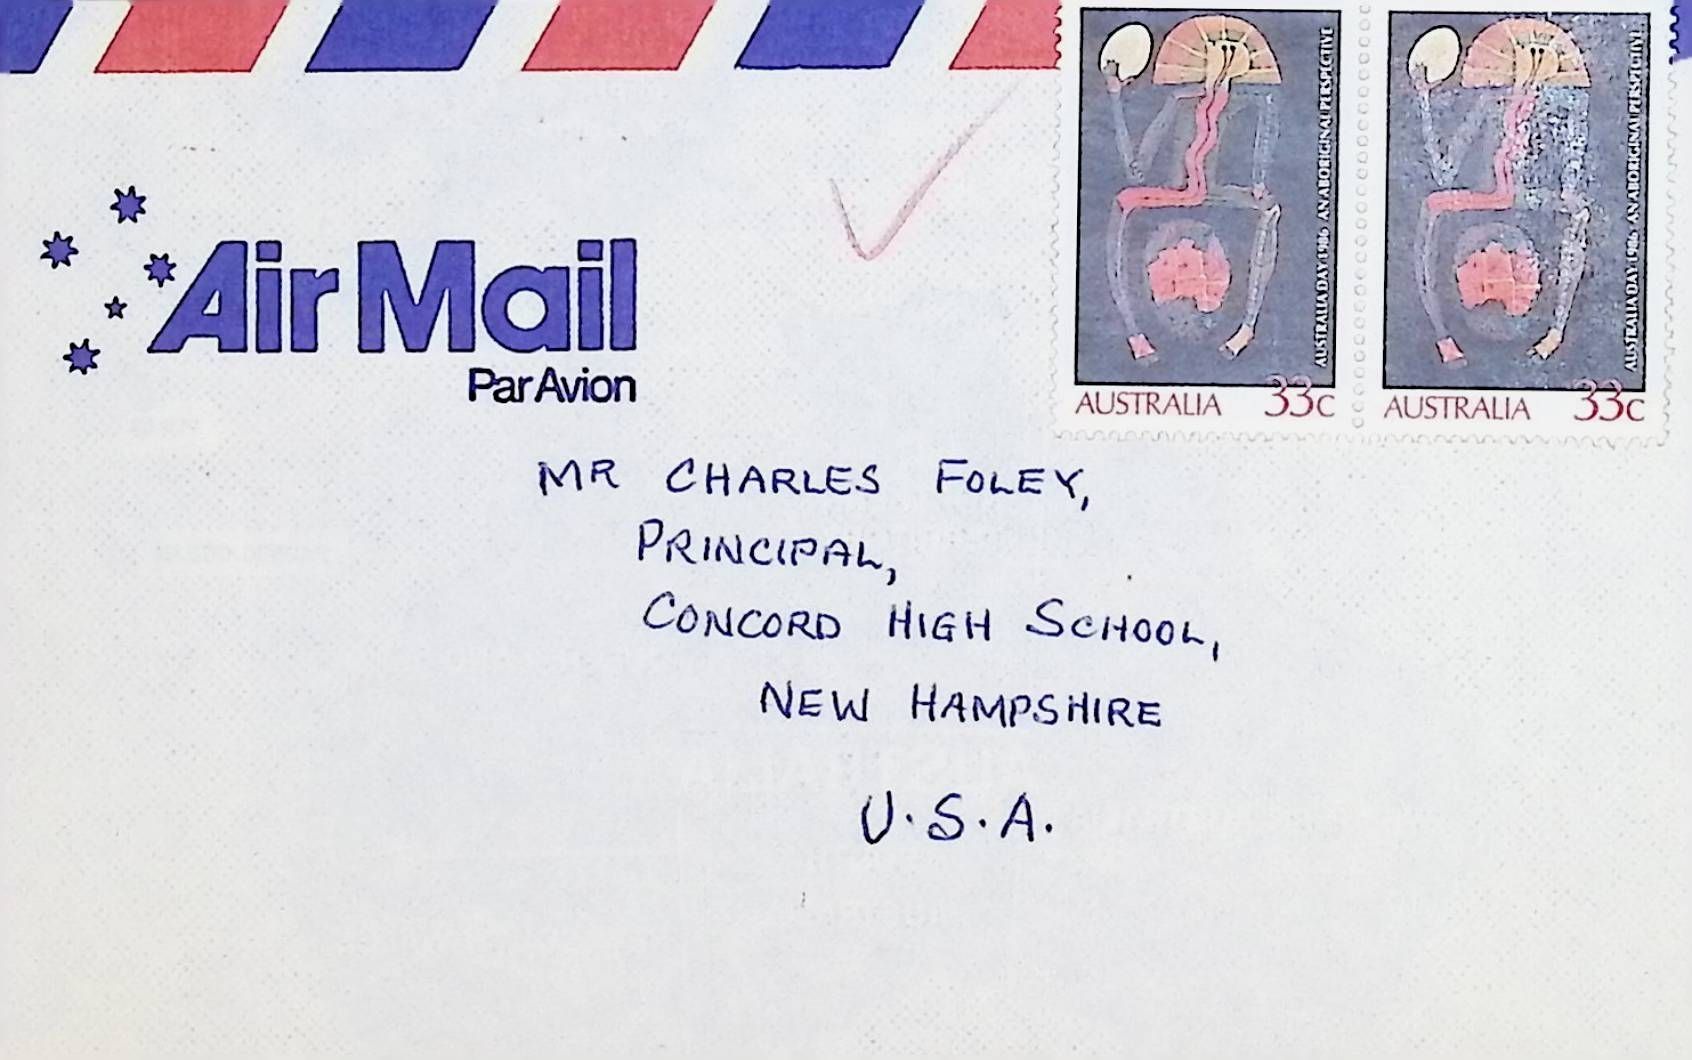 AUSTRALIA DAY 1986 AN ABORIGINAL PERSPECTIVE
AUSTRALIA 33c
AUSTRALIA DAY 1986 AN ABORIGINAL PERSPECTIVE
AUSTRALIA 33c
Air Mail
Par Avion
MR CHARLES FOLEY,
PRINCIPAL,
CONCORD HIGH SCHOOL,
NEW HAMPSHIRE
U.S.A.